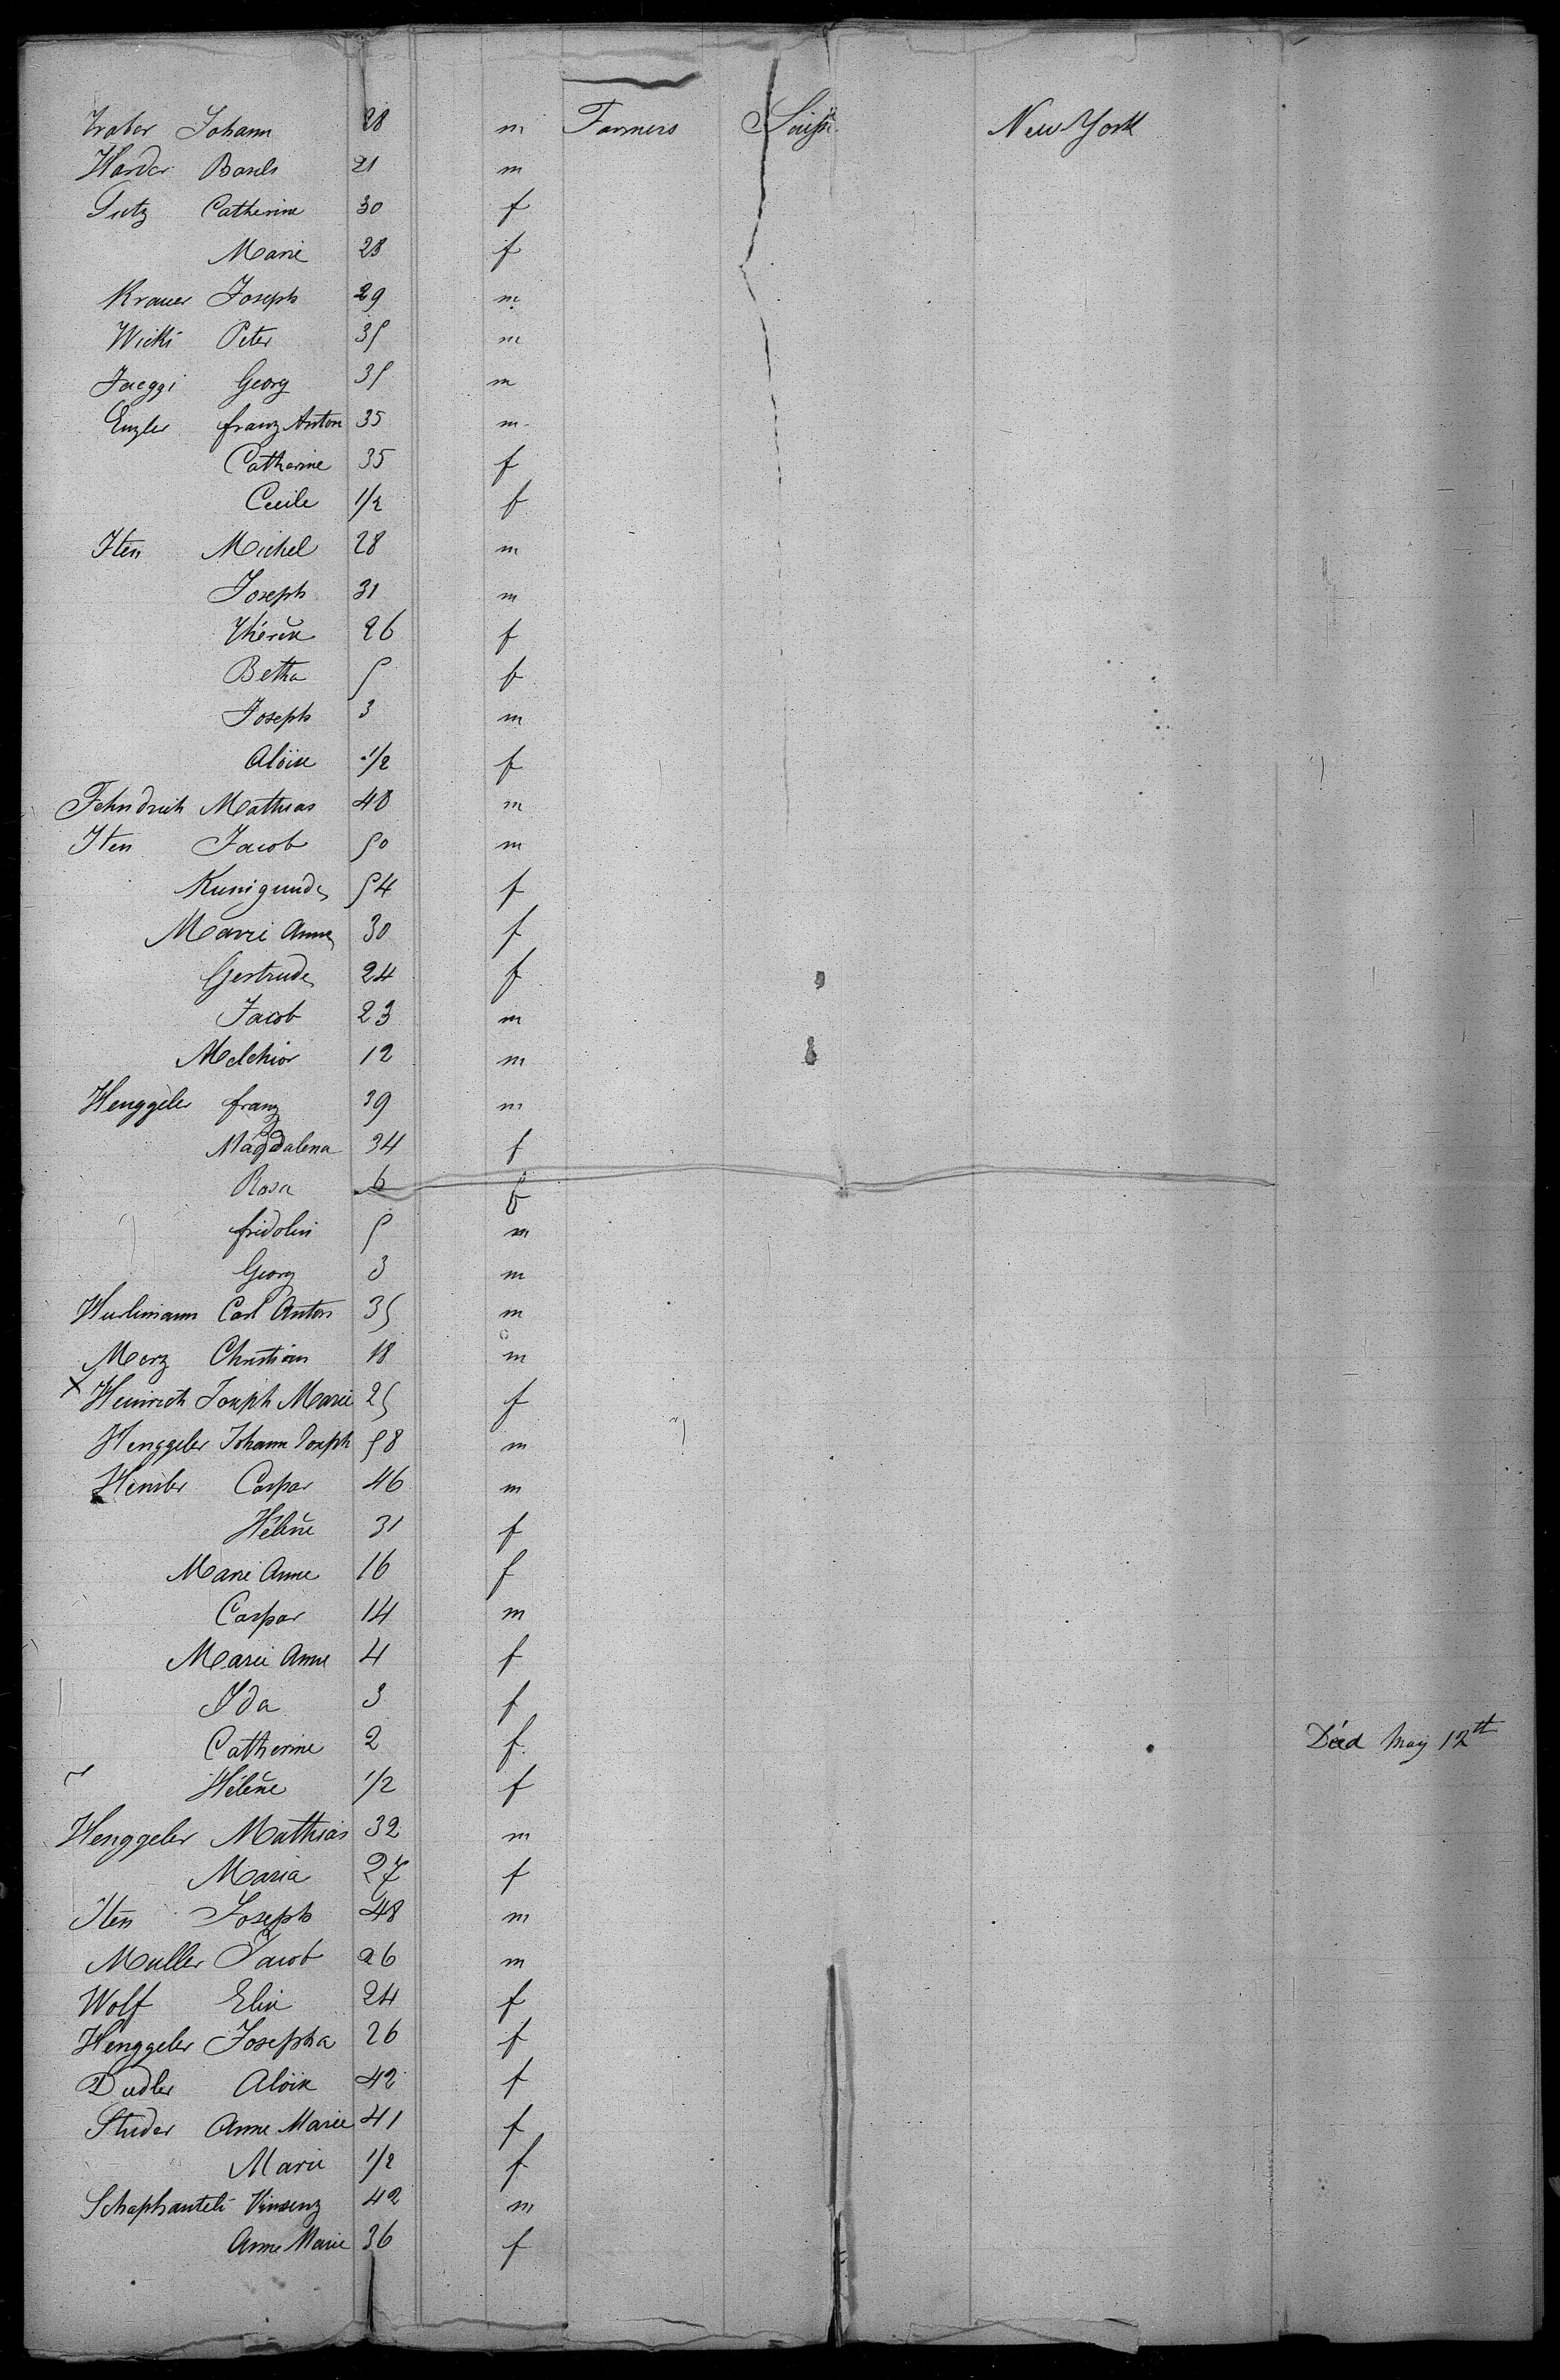 Johann 28 m Farmers Suisse New York
21 m
Catherine 30 f
Marie 28 f
Krauer Joseph 29 m
Wicki Peter 35 m
Jaeggi Georg 35 m
Enzler franz Anton 35 m
Catherine 35 f
Cecile 1/2 f
Iten Michel 28 m
Joseph 31 m
Thérèse 26 f
Betha 5 f
Joseph 3 m
Aloïse 1/2 f
Fehndrich Mathias 48 m
Iten Jacob 50 m
Kunigunde 54 f
Marie Anne 30 f
Gertrude 24 f
Jacob 23 m
Melchior 12 m
Henggeler franz 39 m
Magdalena 34 f
Rosa 6 f
fridolin 5 m
Georg 3 m
Hurlimann Carl Anton 35 m
Merz Christian 18 m
x Heinrich Joseph Marie 25 f
Henggeler Johann Joseph 58 m
Caspar 46 m
Hélène 31 f
Marie Anne 16 f
Caspar 14 m
Marie Anne 4 f
Ida 3 f
Catherine 2 f Died May 12th
Hélène 1/2 f
Henggeler Mathias 32 m
Maria 27 f
Iten Joseph 48 m
Muller Jacob 26 m
Wolf Elise 24 f
Henggeler Josepha 26 f
Dudler Aloïse 42 f
Studer Anne Marie 41 f
Marie 1/2 f
Vinzenz 42 m
Anne Marie 36 f